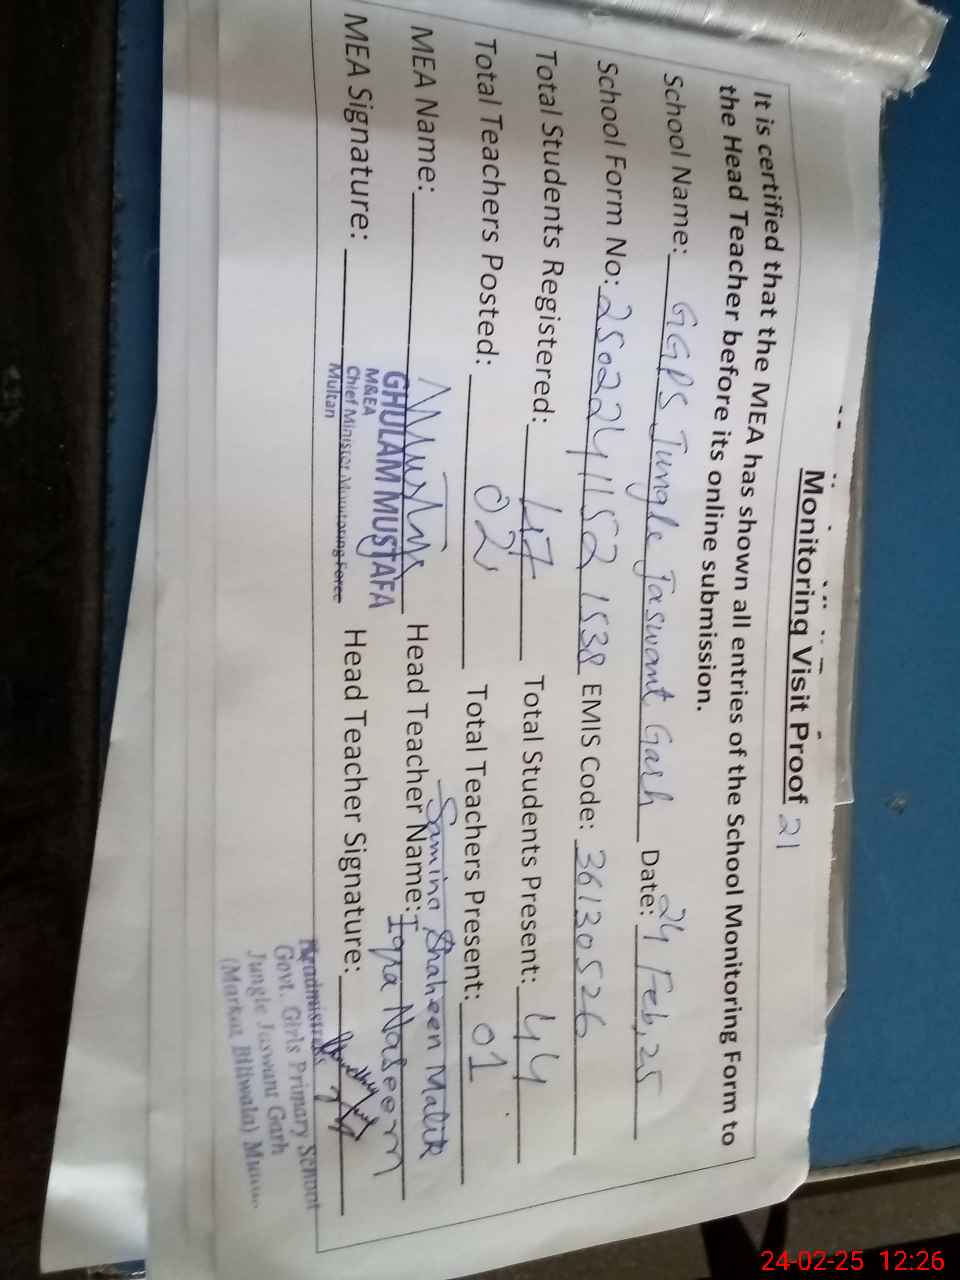 Monitoring Visit Proof 21
It is certified that the MEA has shown all entries of the School Monitoring Form to
the Head Teacher before its online submission.
School Name: GGPS Jungle Jaswant Garh Date: 24 Feb, 25
School Form No: 25022411521538 EMIS Code: 36130526
Total Students Registered: 47 Total Students Present: 44
Total Teachers Posted: 02 Total Teachers Present: 01
Samina Shaheen Malik
MEA Name: Head Teacher Name: Iqra Naseem
GHULAM MUSTAFA
M&EA
Chief Minister Monitoring Force
Multan
MEA Signature: Head Teacher Signature:
Headmistress
Govt. Girls Primary School
Jungle Jaswant Garh
(Markaz Billiwala) Multan
24-02-25 12:26